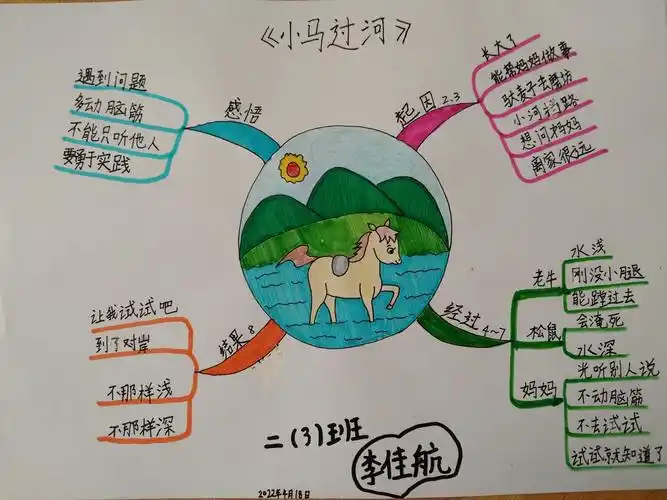 《小马过河》
起因 2.3
长大了
能帮妈妈做事
驮麦子去磨坊
小河挡路
想问妈妈
离家很远
经过 4~7
老牛
水浅
刚没小腿
能蹚过去
松鼠
会淹死
水深
妈妈
光听别人说
不动脑筋
不去试试
试试就知道了
结果 8
让我试试吧
到了对岸
不那样浅
不那样深
感悟
遇到问题
多动脑筋
不能只听他人
要勇于实践
二(3)班
李佳航
2022年4月18日